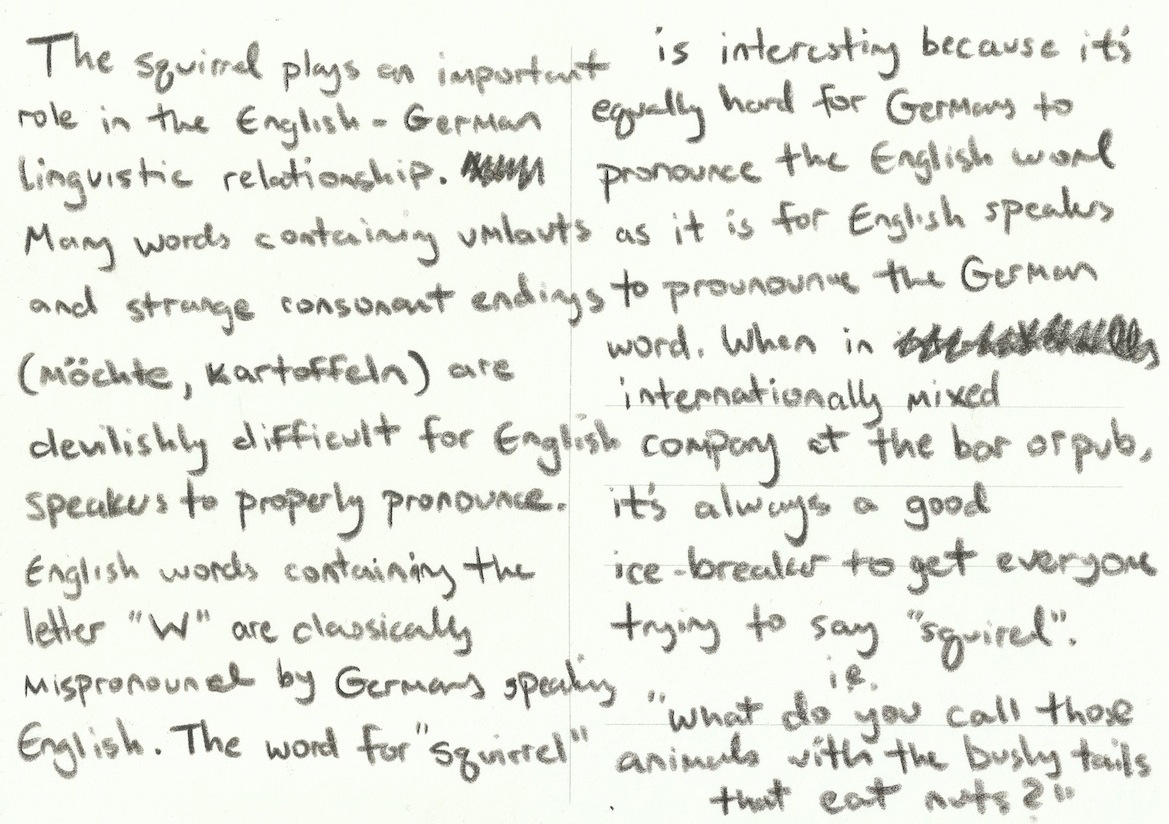 The squirrel plays an important
role in the English-German
linguistic relationship.
Many words containing umlauts
and strange consonant endings
(möchte, kartoffeln) are
devilishly difficult for English
speakers to properly pronounce.
English words containing the
letter "W" are classically
mispronounced by Germans speaking
English. The word for "squirrel"
is interesting because it's
equally hard for Germans to
pronounce the English word
as it is for English speakers
to prounounce the German
word. When in
internationally mixed
company at the bar or pub,
it's always a good
ice-breaker to get everyone
trying to say "squirel".
i.e.
"what do you call those
animals with the bushy tails
that eat nuts?"